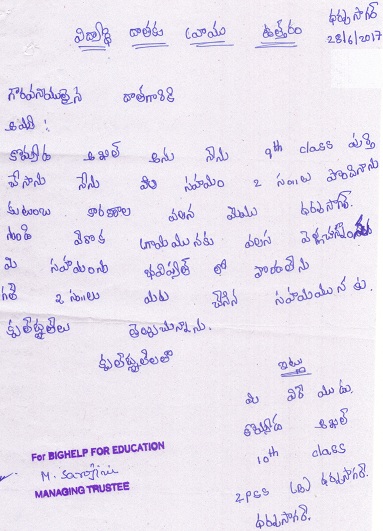 ధర్మసాగర్
28/6/2017
విద్యార్థి దాతకు వ్రాయు ఉత్తరం
గౌరవనీయులైన దాతగారికి
అఖిల్ అను నేను 9th class పూర్తి
చేసాను నేను మీ సహాయం 2 సం॥లు పొందినాను
కుటుంబ కారణాల వలన మేము ధర్మసాగర్.
నుండి వేరొక గ్రామమునకు వలస
మీ సహాయంను భవిష్యత్ లో పొందలేను
గత 2 సం॥లు మీరు చేసిన సహాయమునకు.
కృతజ్ఞతలు తెలుపుచున్నాను.
కృతజ్ఞతలతో
ఇట్లు
మీ
అఖిల్
10th class
ZPSS (B) ధర్మసాగర్.
ధర్మసాగర్.
For BIGHELP FOR EDUCATION
M. Sarojini
MANAGING TRUSTEE